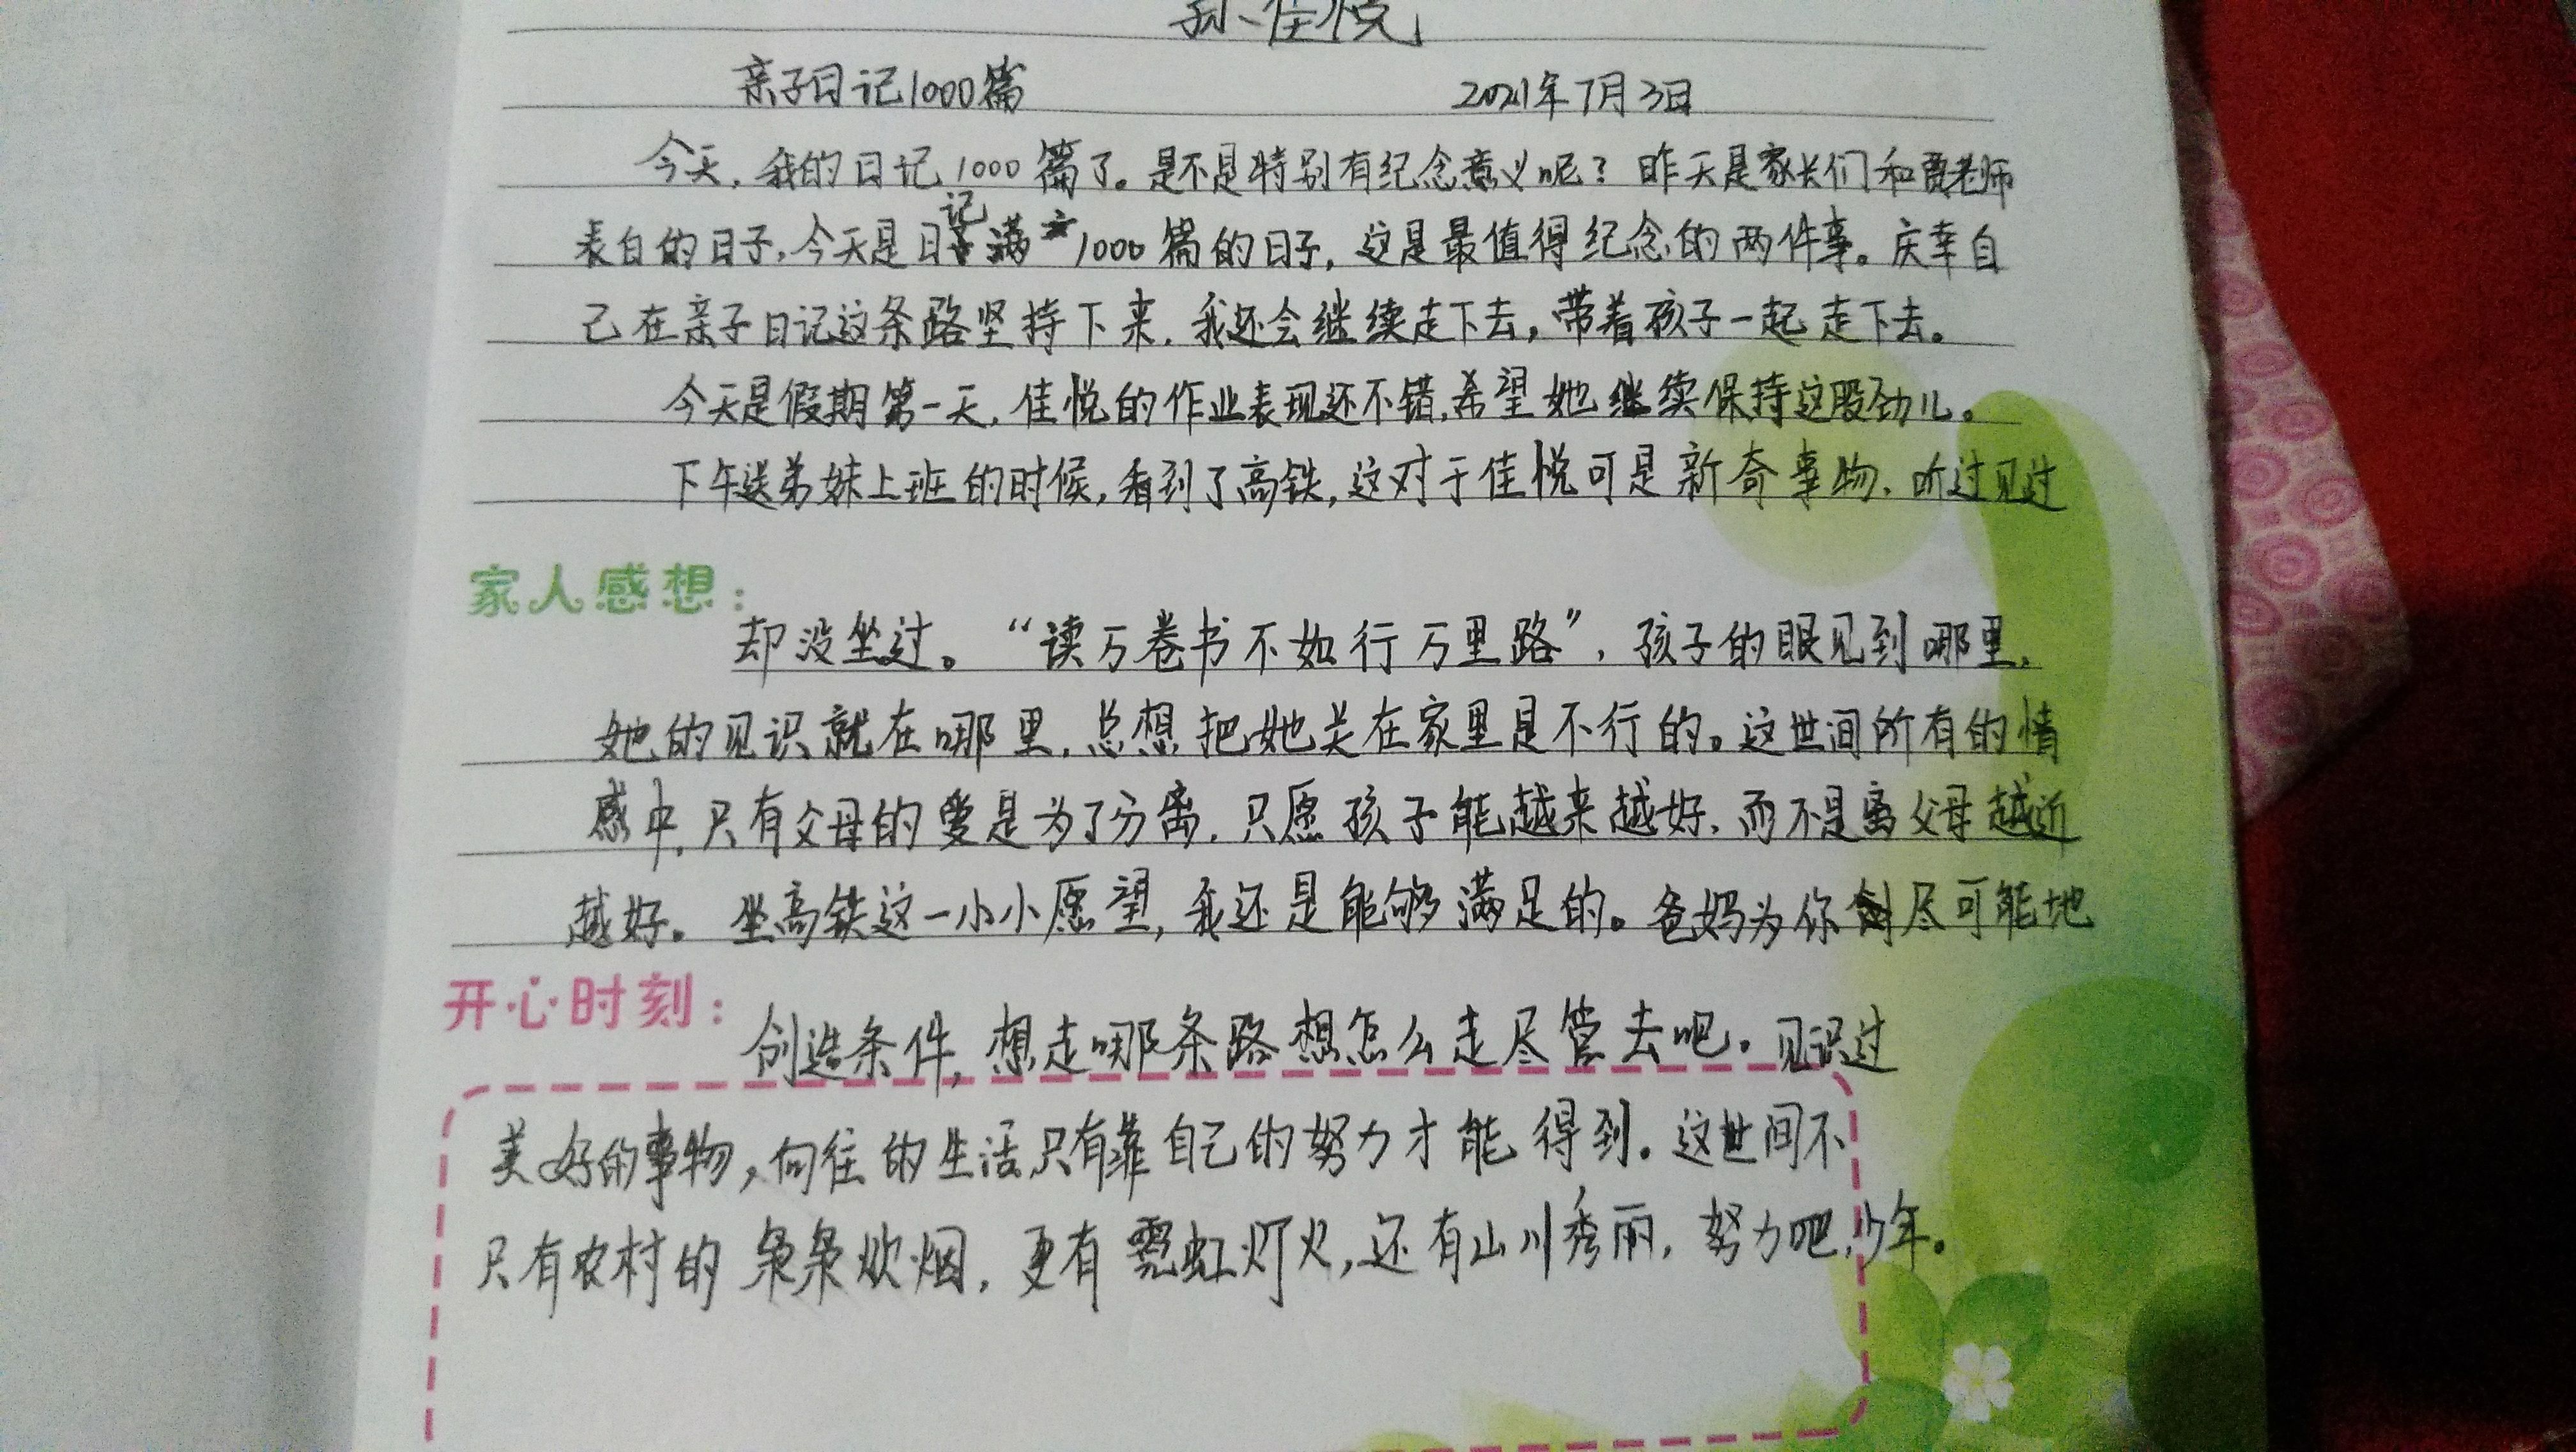 孙佳悦
亲子日记1000篇 2021年7月3日
今天，我的日记1000篇了。是不是特别有纪念意义呢？昨天是家长们和贾老师
表白的日子，今天是日记满1000篇的日子，这是最值得纪念的两件事。庆幸自
己在亲子日记这条路坚持下来，我还会继续走下去，带着孩子一起走下去。
今天是假期第一天，佳悦的作业表现还不错，希望她继续保持这股劲儿。
下午送弟妹上班的时候，看到了高铁，这对于佳悦可是新奇事物，听过见过
家人感想：
却没坐过。“读万卷书不如行万里路”，孩子的眼见到哪里，
她的见识就在哪里，总想把她关在家里是不行的。这世间所有的情
感中，只有父母的爱是为了分离，只愿孩子能越来越好，而不是离父母越近
越好。坐高铁这一小小愿望，我还是能够满足的。爸妈为你尽可能地
开心时刻：
创造条件，想走哪条路想怎么走尽管去吧。见识过
美好的事物，向往的生活只有靠自己的努力才能得到。这世间不
只有农村的枭枭炊烟，更有霓虹灯火，还有山川秀丽，努力吧，少年。